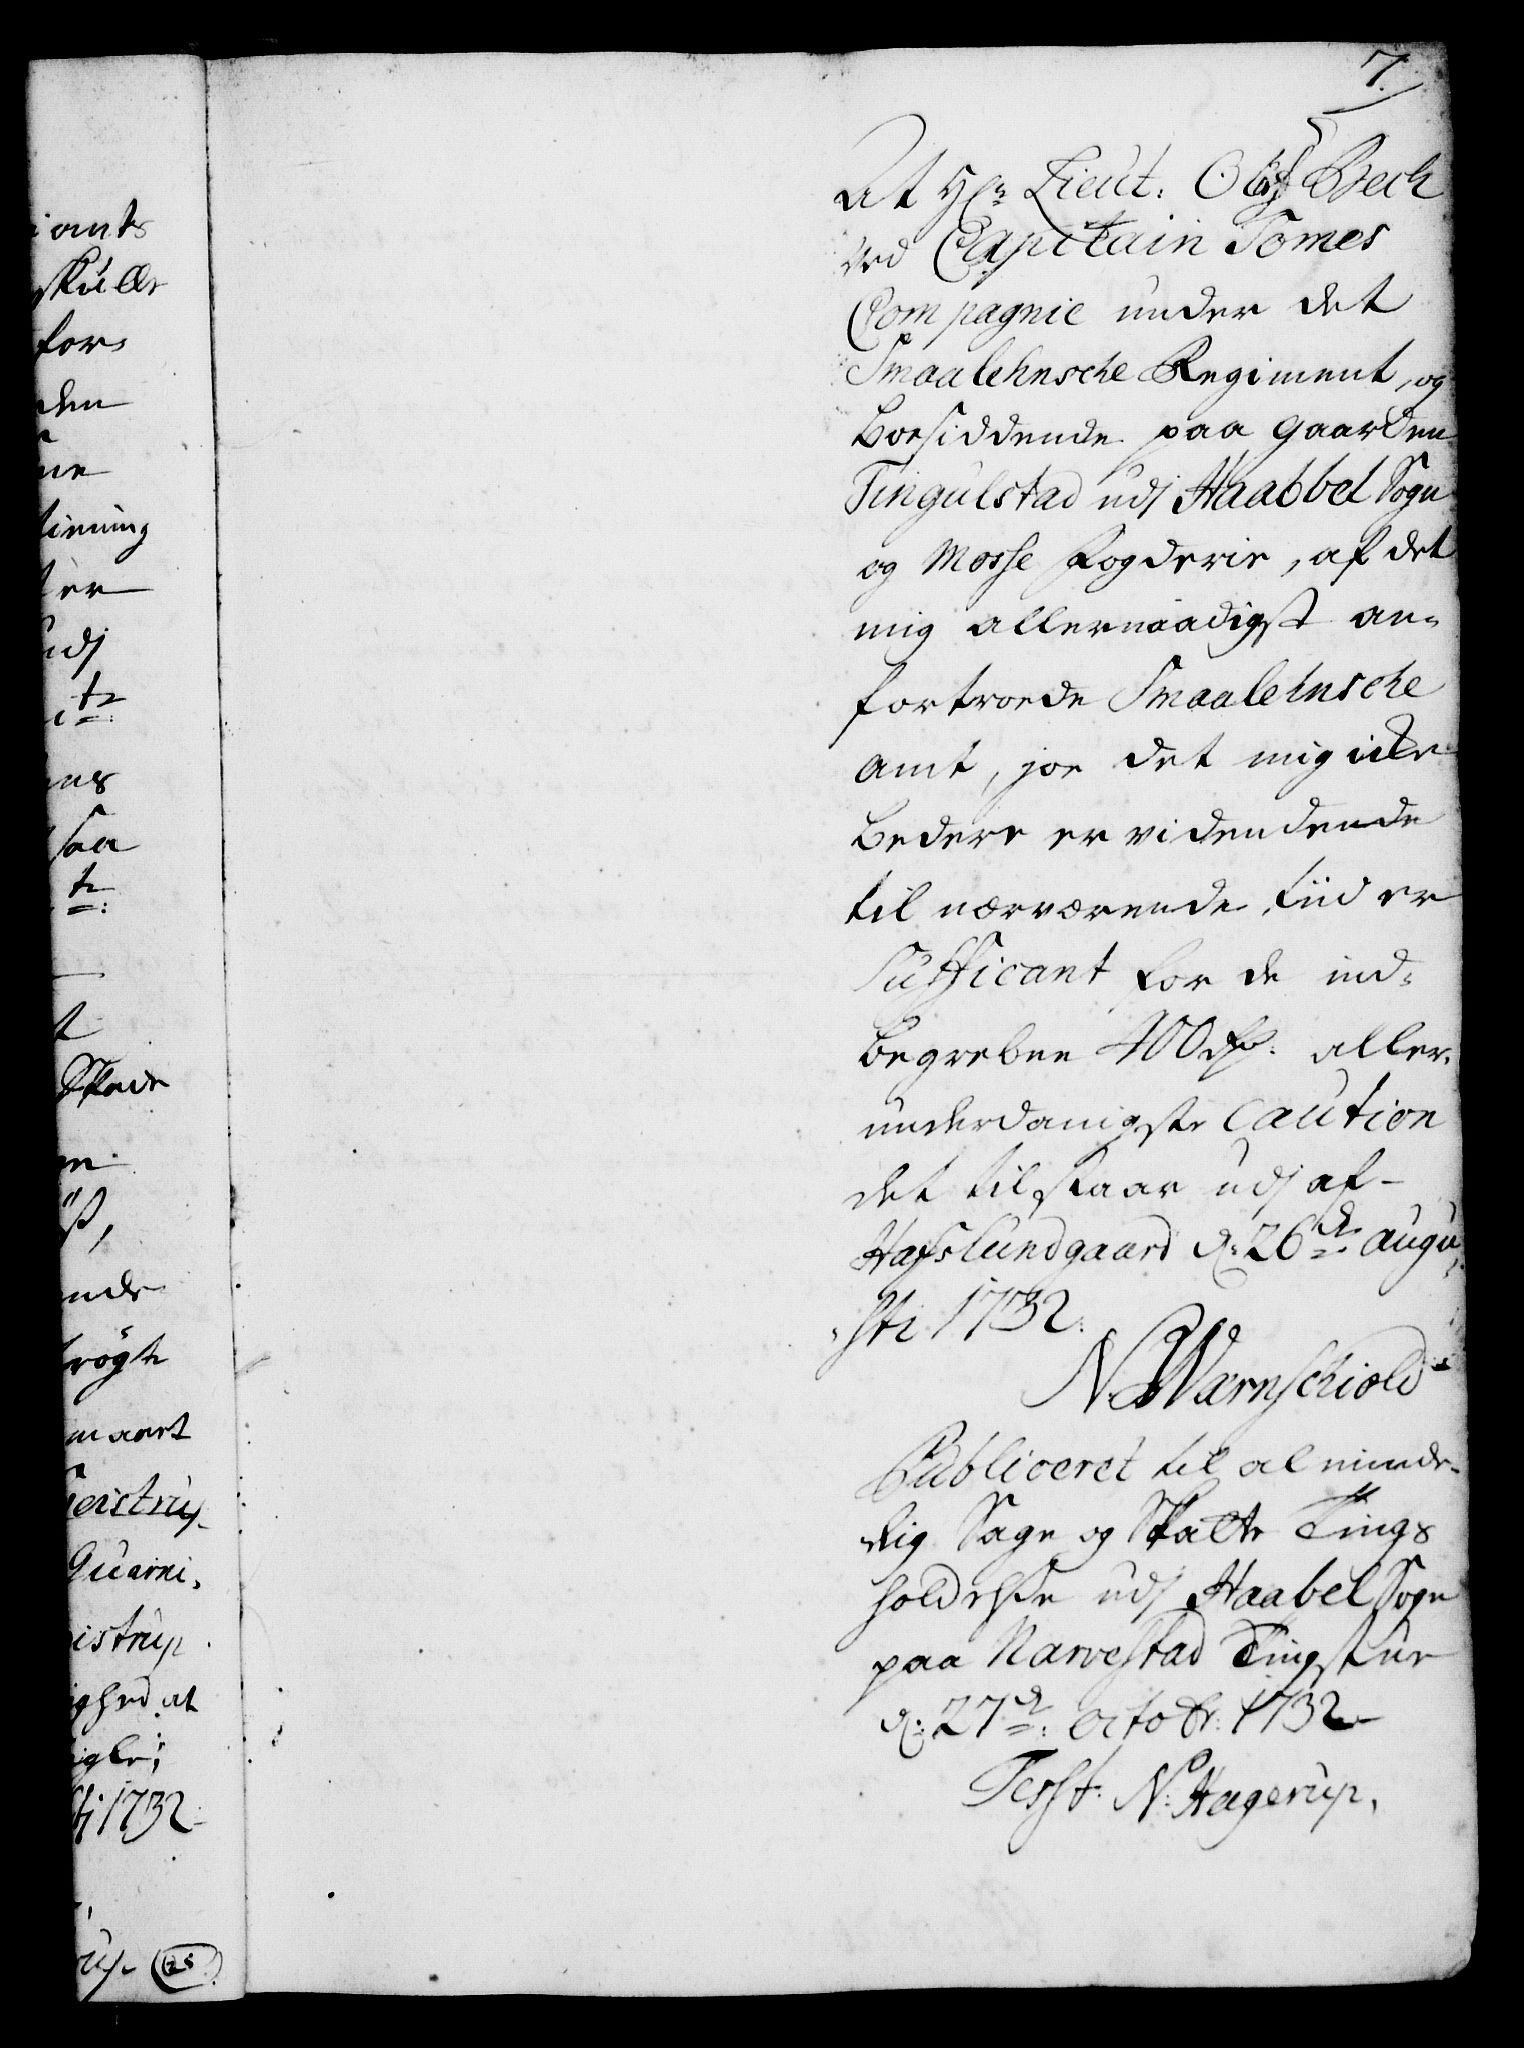 7.
At Hr: Lieut: Oluf Bech
ved Capitain Tomes
Compagnie under det
Smaalehnsche Regiment, og
Boesiddende paa gaarden
Tingulstad udj Haabbel Sogn
og Mosse fogderie, af det
mig allernaadigst an-
fortroede Smaalehnsche
amt, joe det mig icke
bedere er videndende
til nærværende tiid er
Sufficant for de ind-
begrebne 400 rdr: aller-
underdanigste Caution
det tilstaar udj af-
Hafslundgaard d: 26de augu-
sti 1732.
N. Wærnschiold
Publiceret til alminde-
lig Sage og Skatte Tings
holdelse udj Haabel Sogn
paa Narvestad Tingstue
d: 27de: octobr: 1732
Test: N: Hagerup.
iants
skulle
for
den
ne
tienning
ter
udj
te
ens
saa
te
t
Skade
en
nde
røgte
maart
eistrup
Guarni-
istrup
ighed at
igle;
tj 1732
rup. 125